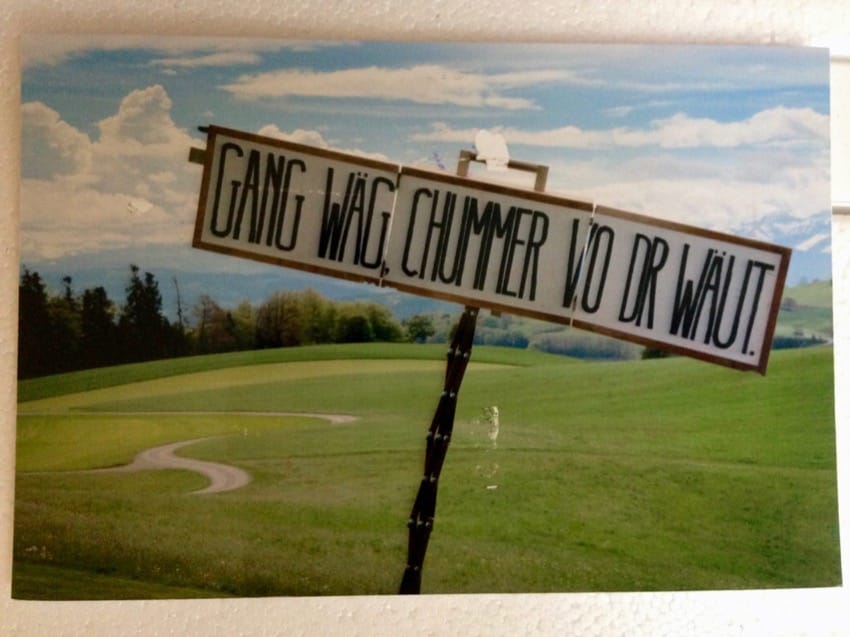 GANG WÄG, CHUMMER VO DR WÄUT.